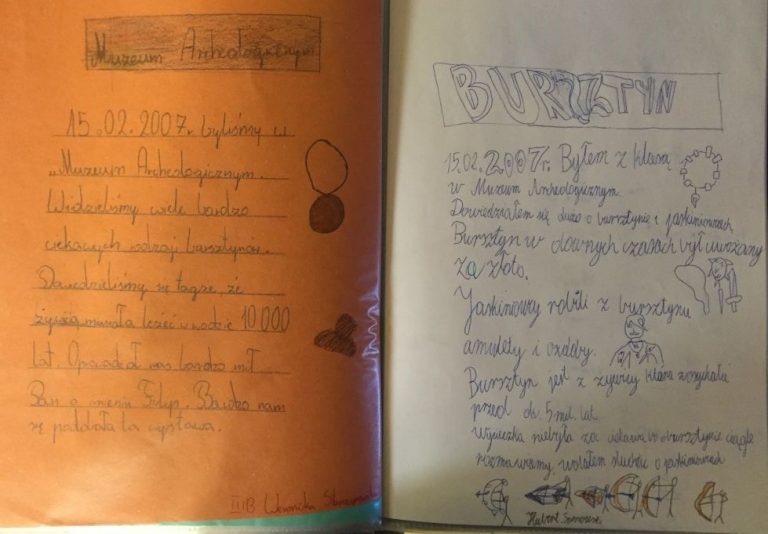 Muzeum Archeologicznym
15.02.2007r. byliśmy w
"Muzeum Archeologicznym.
Widzieliśmy wiele bardzo
ciekawych rodzaji bursztynów.
Dowiedzieliśmy się także, że
żywica musiała leżeć w wodzie 10 000
lat. Opowiadał nas bardzo mił
Pan o imieniu Filip. Bardzo nam
się podobała ta wystawa.
III B Weronika
BURSZTYN
15.02.2007r. Byłem z klasą
w Muzeum Archeologicznym.
Dowiedziałem się dużo o bursztynie i jaskiniowcach
Bursztyn w downych czasach był uważany
za złoto.
Jaskinowcy robili z bursztynu
amulety i ozdoby.
Bursztyn jest z żywicy która zasychała
przed ok. 5 mil. lat.
Wycieczka niebyła za ciekawa o bursztynie ciągle
rozmawiamy, wolałem słuchać o jaskiniowcach
Hubert